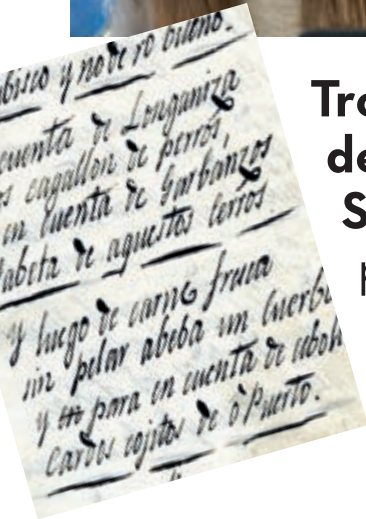 y no de ro bueno.
cuenta de Longaniza
cagallon de perros,
en cuenta de Garbanzos
de aquestos Cerros
y luego de carne fresca
sin pelar abeba un Cuerbo
y en para en cuenta de
Cardos cojitos de o Puerto.
Tro
de
S